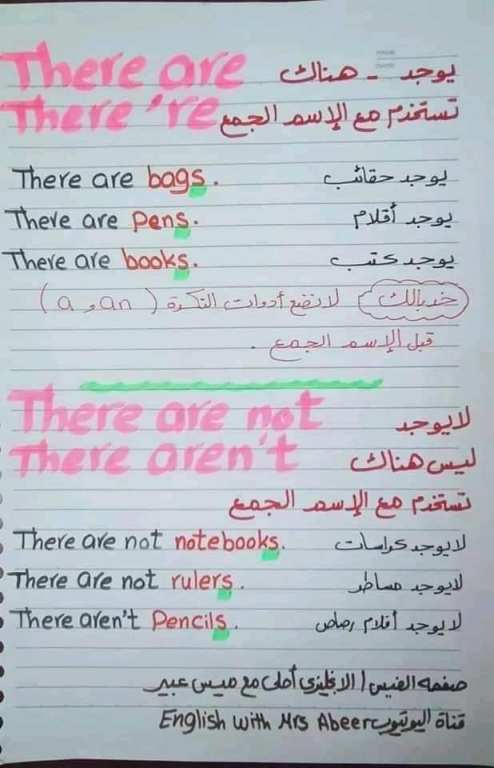 There are يوجد - هناك
There're تستخدم مع الإسم الجمع
There are bags. يوجد حقائب
There are pens. يوجد أقلام
There are books. يوجد كتب
خدبالك لا نضع أدوات النكرة (a و an)
قبل الإسم الجمع.
There are not لا يوجد
There aren't ليس هناك
تستخدم مع الإسم الجمع
There are not notebooks. لا يوجد كراسات
There are not rulers. لا يوجد مساطر
There aren't Pencils. لا يوجد أقلام رصاص
صفحه الفيس / الانجليزي أحلى مع ميس عبير
قناة اليوتيوب English with Mrs Abeer